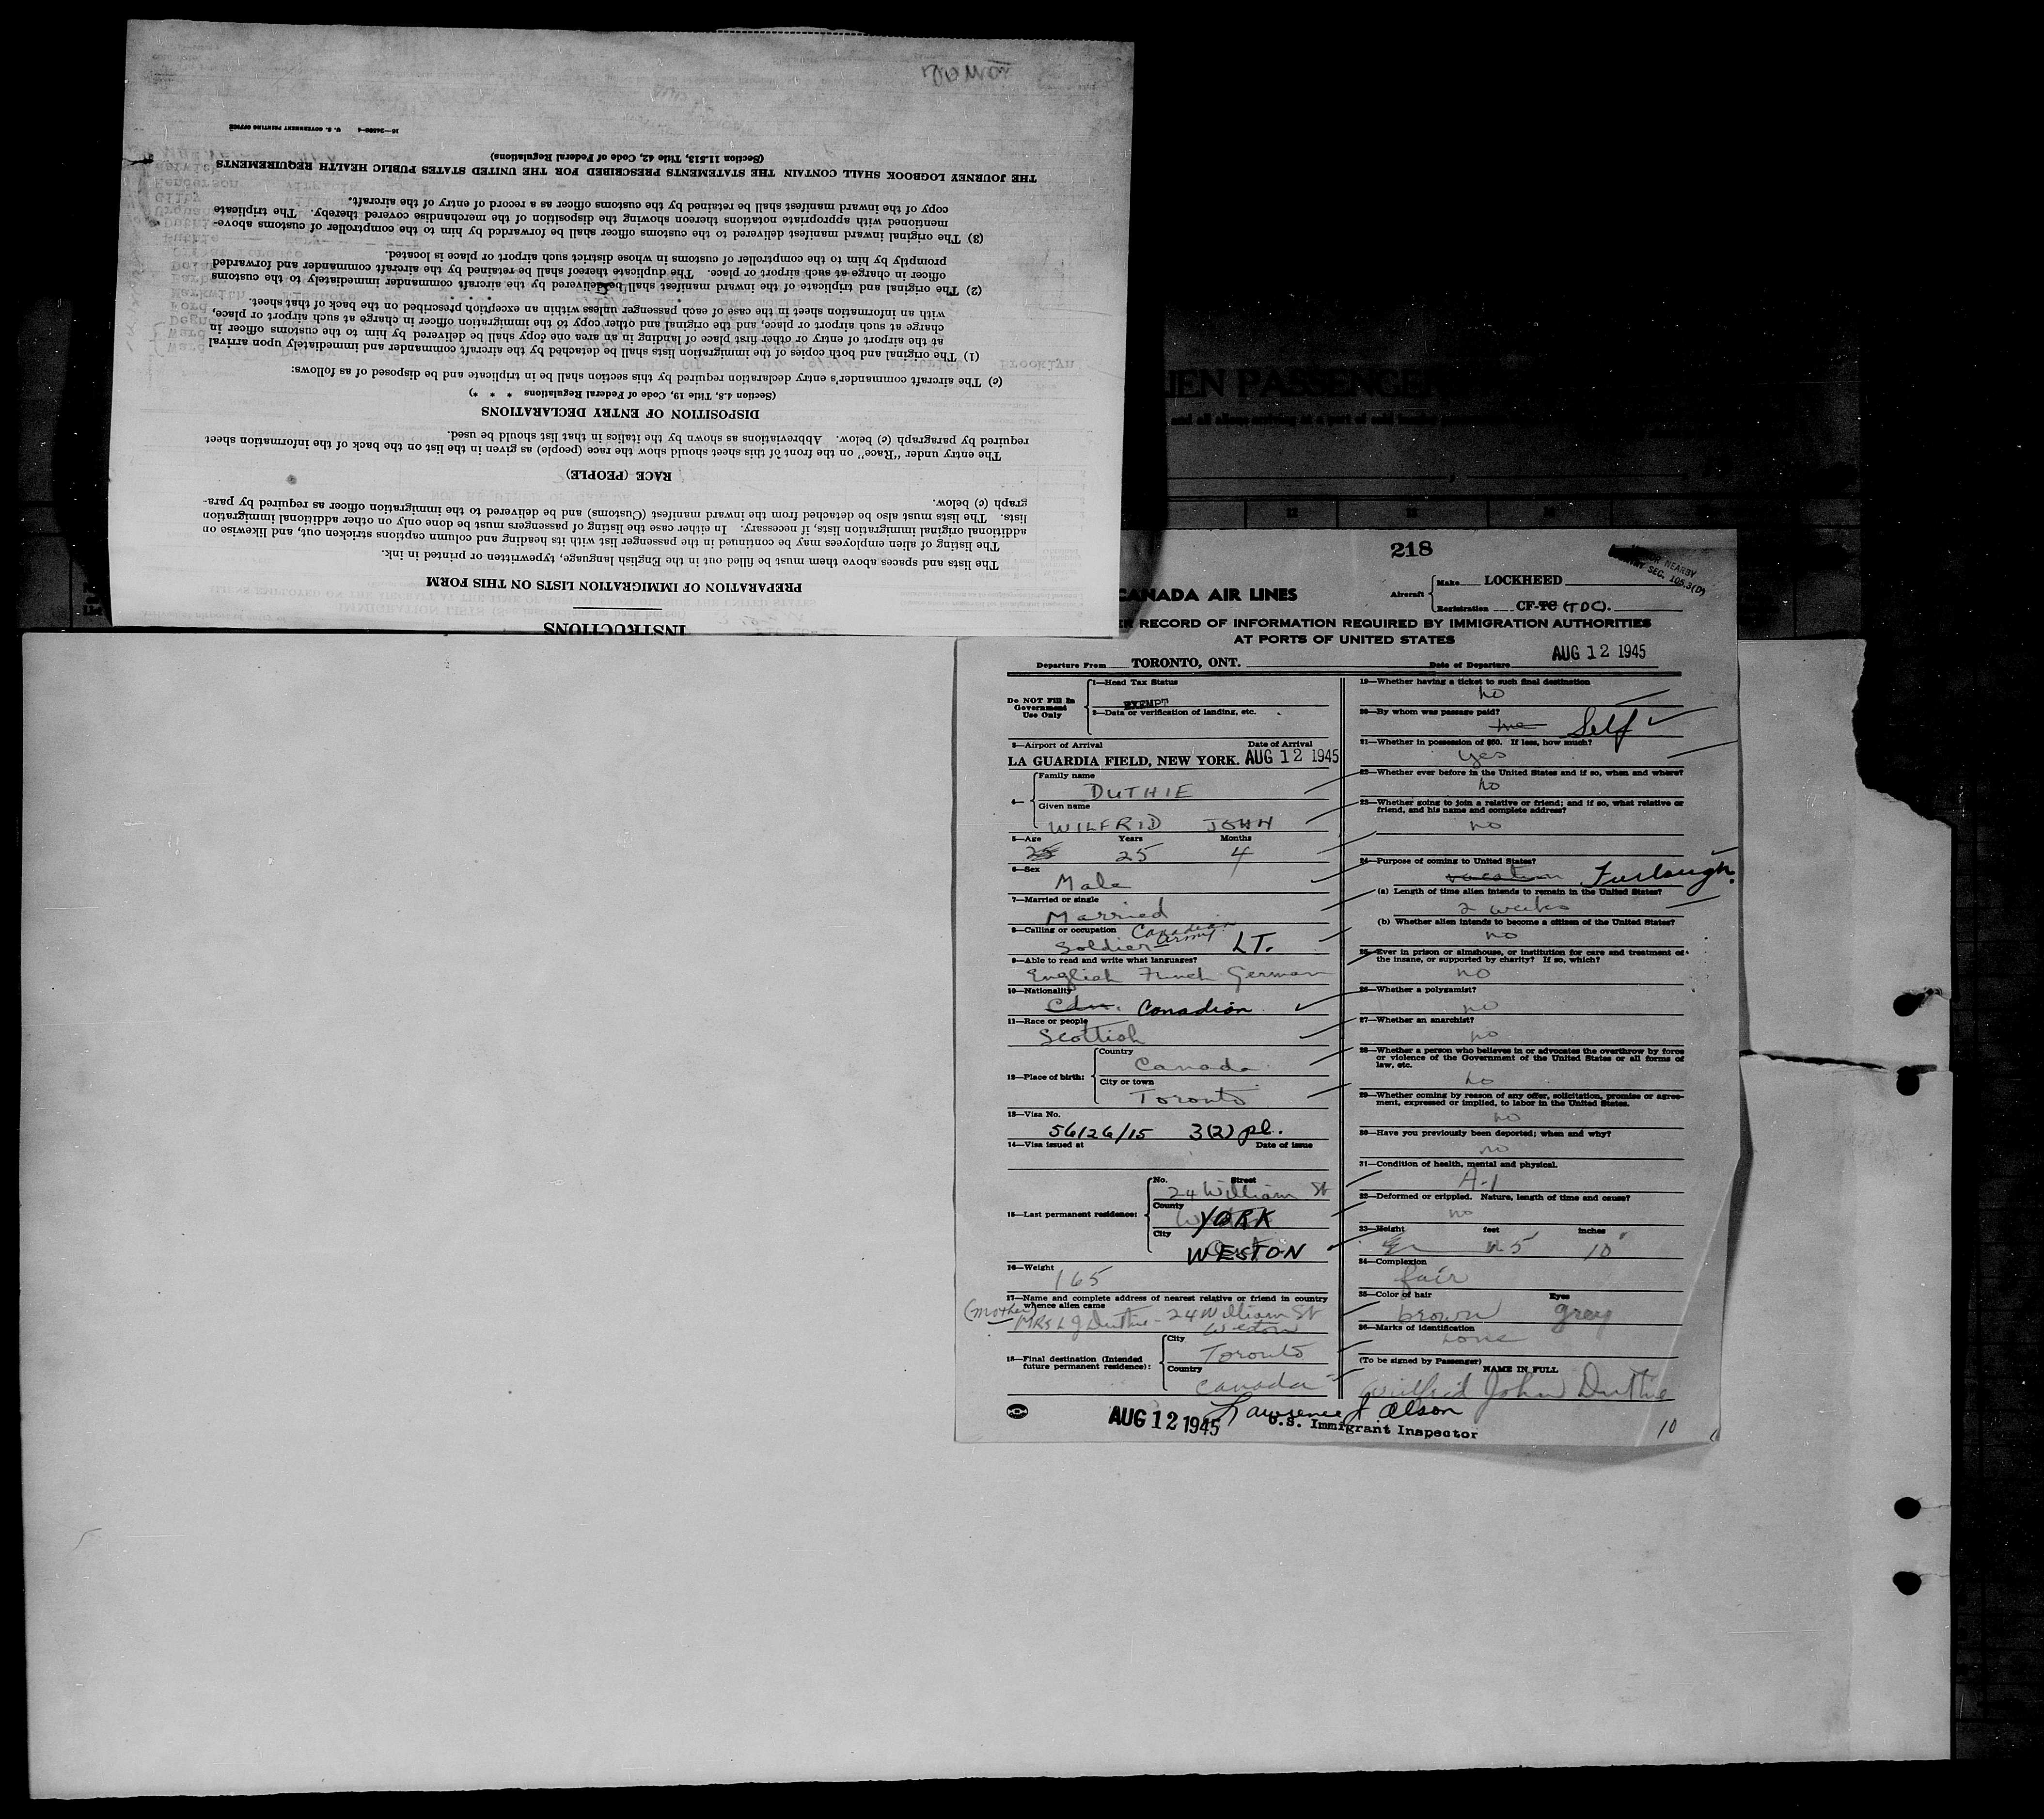 INSTRUCTIONS
PREPARATION OF IMMIGRATION LISTS ON THIS FORM
The lists and spaces above them must be filled out in the English language, typewritten or printed in ink.
The listing of alien employees may be continued in the passenger list with its heading and column captions stricken out, and likewise on
additional original immigration lists, if necessary. In either case the listing of passengers must be done only on other additional immigration
lists. The lists must also be detached from the inward manifest (Customs) and be delivered to the immigration officer as required by para-
graph (c) below.
RACE (PEOPLE)
The entry under "Race" on the front of this sheet should show the race (people) as given in the list on the back of the information sheet
required by paragraph (c) below. Abbreviations as shown by the italics in that list should be used.
DISPOSITION OF ENTRY DECLARATIONS
(Section 4.8, Title 19, Code of Federal Regulations * * *)
(c) The aircraft commander's entry declaration required by this section shall be in triplicate and be disposed of as follows:
(1) The original and both copies of the immigration lists shall be detached by the aircraft commander and immediately upon arrival
at the airport of entry or other first place of landing in an area one copy shall be delivered by him to the customs officer in
charge at such airport or place, and the original and other copy to the immigration officer in charge at such airport or place,
with an information sheet in the case of each passenger unless within an exception prescribed on the back of that sheet.
* * *
(2) The original and triplicate of the inward manifest shall be delivered by the aircraft commander immediately to the customs
officer in charge at such airport or place. The duplicate thereof shall be retained by the aircraft commander and forwarded
promptly by him to the comptroller of customs in whose district such airport or place is located.
(3) The original inward manifest delivered to the customs officer shall be forwarded by him to the comptroller of customs above-
mentioned with appropriate notations thereon showing the disposition of the merchandise covered thereby. The triplicate
copy of the inward manifest shall be retained by the customs officer as a record of entry of the aircraft.
THE JOURNEY LOGBOOK SHALL CONTAIN THE STATEMENTS PRESCRIBED FOR THE UNITED STATES PUBLIC HEALTH REQUIREMENTS
(Section 11.513, Title 42, Code of Federal Regulations)
U. S. GOVERNMENT PRINTING OFFICE
IEN PASSENGER
218
CANADA AIR LINES
Aircraft
Make LOCKHEED
Registration CF-TC (TDC).
RECORD OF INFORMATION REQUIRED BY IMMIGRATION AUTHORITIES
AT PORTS OF UNITED STATES
Departure From TORONTO, ONT. Date of Departure AUG 12 1945
Do NOT Fill In
Government
Use Only
1—Head Tax Status
EXEMPT
2—Data or verification of landing, etc.
3—Airport of Arrival Date of Arrival
LA GUARDIA FIELD, NEW YORK. AUG 12 1945
4—
Family name
DUTHIE
Given name
WILFRID JOHN
5—Age Years Months
25 25 4
6—Sex
Male
7—Married or single
Married
8—Calling or occupation Canadian
Soldier Army LT.
9—Able to read and write what languages?
English French German
10—Nationality
Cdn. Canadian
11—Race or people
Scottish
12—Place of birth:
Country
Canada
City or town
Toronto
13—Visa No.
56126/15 3(2) pl.
14—Visa issued at Date of issue
15—Last permanent residence:
No. Street
24 William St
County
YORK
City
WESTON
16—Weight
165
17—Name and complete address of nearest relative or friend in country
whence alien came
(mother) MRS L J Duthie - 24 William St
Weston
18—Final destination (Intended
future permanent residence):
City
Toronto
Country
Canada
19—Whether having a ticket to such final destination
no
20—By whom was passage paid?
me Self
21—Whether in possession of $50. If less, how much?
yes
22—Whether ever before in the United States and if so, when and where?
no
23—Whether going to join a relative or friend; and if so, what relative or
friend, and his name and complete address?
no
24—Purpose of coming to United States?
vacation Furlough.
(a) Length of time alien intends to remain in the United States?
2 weeks
(b) Whether alien intends to become a citizen of the United States?
no
25—Ever in prison or almshouse, or institution for care and treatment of
the insane, or supported by charity? If so, which?
no
26—Whether a polygamist?
no
27—Whether an anarchist?
no
28—Whether a person who believes in or advocates the overthrow by force
or violence of the Government of the United States or all forms of
law, etc.
no
29—Whether coming by reason of any offer, solicitation, promise or agree-
ment, expressed or implied, to labor in the United States.
no
30—Have you previously been deported; when and why?
no
31—Condition of health, mental and physical.
A-1
32—Deformed or crippled. Nature, length of time and cause?
no
33—Height feet inches
5 10"
34—Complexion
fair
35—Color of hair Eyes
brown grey
36—Marks of identification
none
(To be signed by Passenger)
NAME IN FULL
Wilfrid John Duthie
AUG 12 1945
Lawrence J Olson
U.S. Immigrant Inspector
10